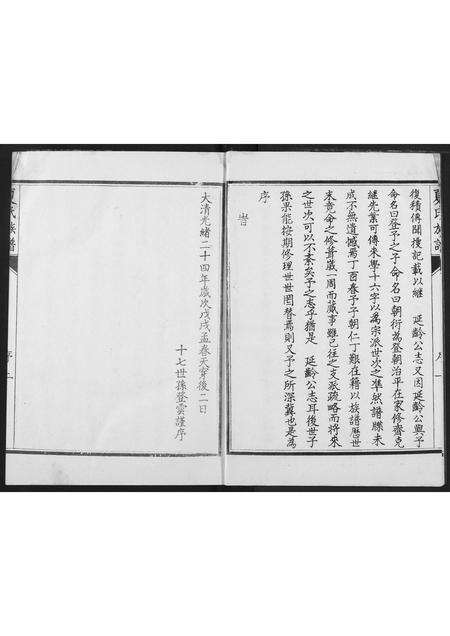 復積傳聞摭記載以繼 延齡公志又因延齡公與予
命名曰登予之子命名曰朝衍為登朝治平在家修齊克
繼先業可傳來學十六字以為宗派世次之準然譜牒未
成不無遺憾焉丁酉春予子朝仁丁艱在籍以族譜歷世
未竟命之修葺歲一周而蕆事雖已往之支派疏略而將來
之世次可以不紊矣予之志乎猶是 延齡公志耳後世子
孫果能按期修理世世罔替焉則又予之所深冀也是為
序
峕
大清光緒二十四年歲次戊戌孟春天穿後二日
十七世孫登雲謹序
夏氏族譜
序一
夏氏族譜
序二